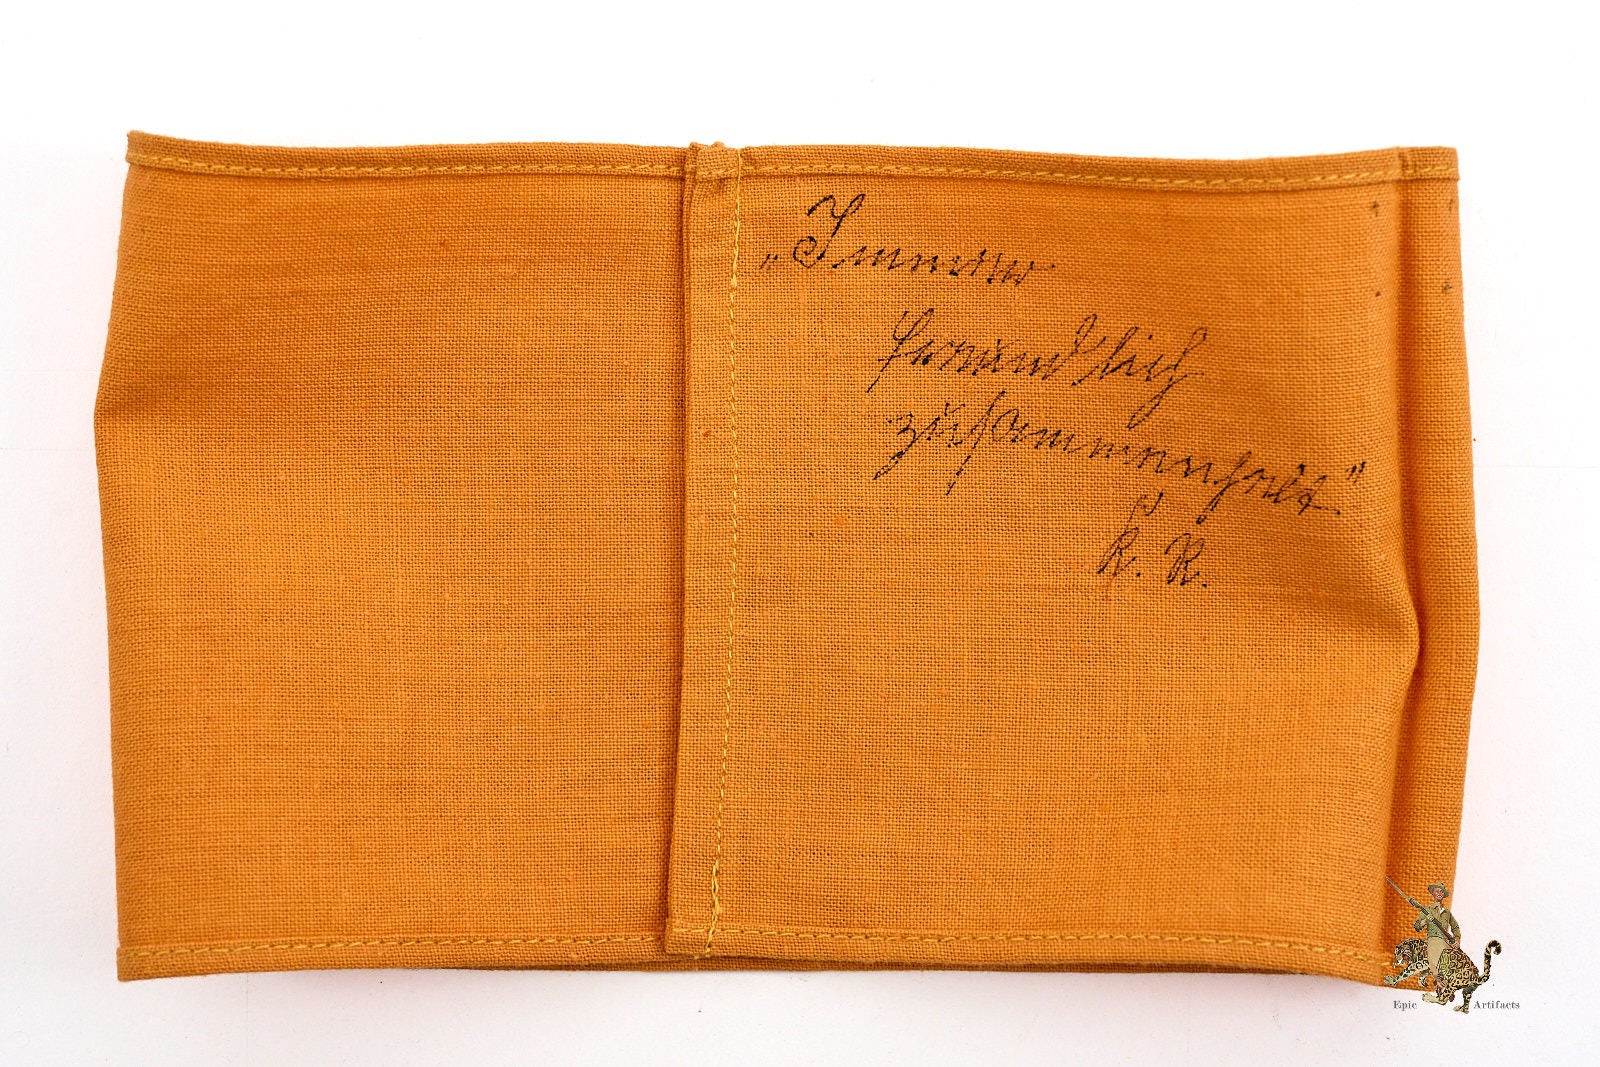 „Immer
freundlich
zusammenhalt."
K. R.
Epic Artifacts